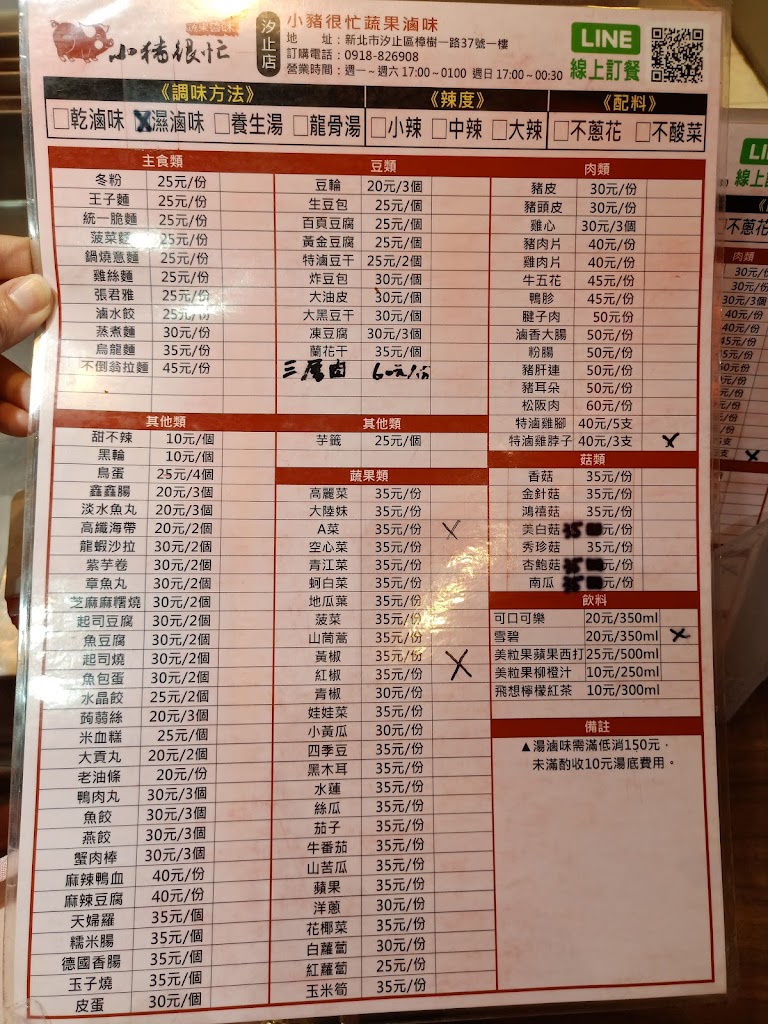 蔬果滷味
小豬很忙
汐止店
小豬很忙蔬果滷味
地 址：新北市汐止區樟樹一路37號一樓
訂購電話：0918-826908
營業時間：週一～週六 17:00～0100 週日 17:00~00:30
LINE
線上訂餐
《調味方法》 《辣度》 《配料》
□乾滷味 ☒濕滷味 □養生湯 □龍骨湯 □小辣 □中辣 □大辣 □不蔥花 □不酸菜
主食類
冬粉 25元/份
王子麵 25元/份
統一脆麵 25元/份
菠菜麵 25元/份
鍋燒意麵 25元/份
雞絲麵 25元/份
張君雅 25元/份
滷水餃 25元/份
蒸煮麵 30元/份
烏龍麵 35元/份
不倒翁拉麵 45元/份
其他類
甜不辣 10元/個
黑輪 10元/個
鳥蛋 25元/4個
鑫鑫腸 20元/3個
淡水魚丸 20元/3個
高纖海帶 20元/2個
龍蝦沙拉 30元/2個
紫芋卷 30元/2個
章魚丸 30元/2個
芝麻麻糬燒 30元/2個
起司豆腐 30元/2個
魚豆腐 30元/2個
起司燒 30元/2個
魚包蛋 30元/2個
水晶餃 25元/2個
蒟蒻絲 20元/3個
米血糕 25元/個
大貢丸 20元/2個
老油條 20元/份
鴨肉丸 30元/3個
魚餃 30元/3個
燕餃 30元/3個
蟹肉棒 30元/3個
麻辣鴨血 40元/份
麻辣豆腐 40元/份
天婦羅 35元/個
糯米腸 35元/個
德國香腸 35元/個
玉子燒 35元/個
皮蛋 30元/個
豆類
豆輪 20元/3個
生豆包 25元/個
百頁豆腐 25元/個
黃金豆腐 25元/個
特滷豆干 25元/2個
炸豆包 30元/個
大油皮 30元/個
大黑豆干 30元/個
凍豆腐 30元/3個
蘭花干 35元/個
三層肉 60元/份
其他類
芋籤 25元/個
蔬果類
高麗菜 35元/份
大陸妹 35元/份
A菜 35元/份 X
空心菜 35元/份
青江菜 35元/份
蚵白菜 35元/份
地瓜葉 35元/份
菠菜 35元/份
山茼蒿 35元/份
黃椒 35元/份
紅椒 35元/份 X
青椒 30元/份
娃娃菜 35元/份
小黃瓜 30元/份
四季豆 35元/份
黑木耳 35元/份
水蓮 35元/份
絲瓜 35元/份
茄子 35元/份
牛番茄 35元/份
山苦瓜 35元/份
蘋果 35元/份
洋蔥 30元/份
花椰菜 35元/份
白蘿蔔 30元/份
紅蘿蔔 25元/份
玉米筍 35元/份
肉類
豬皮 30元/份
豬頭皮 30元/份
雞心 30元/3個
豬肉片 40元/份
雞肉片 40元/份
牛五花 45元/份
鴨胗 45元/份
腱子肉 50元份
滷香大腸 50元/份
粉腸 50元/份
豬肝連 50元/份
豬耳朵 50元/份
松阪肉 60元/份
特滷雞腳 40元/5支
特滷雞脖子 40元/3支 X
菇類
香菇 35元/份
金針菇 35元/份
鴻禧菇 35元/份
美白菇 35元/份
秀珍菇 35元/份
杏鮑菇 35元/份
南瓜 35元/份
飲料
可口可樂 20元/350ml
雪碧 20元/350ml X
美粒果蘋果西打 25元/500ml
美粒果柳橙汁 10元/250ml
飛想檸檬紅茶 10元/300ml
備註
▲湯滷味需滿低消150元，
未滿酌收10元湯底費用。
LI
線上
不蔥花
肉類
30元/份
30元/份
30元/3個
40元/份